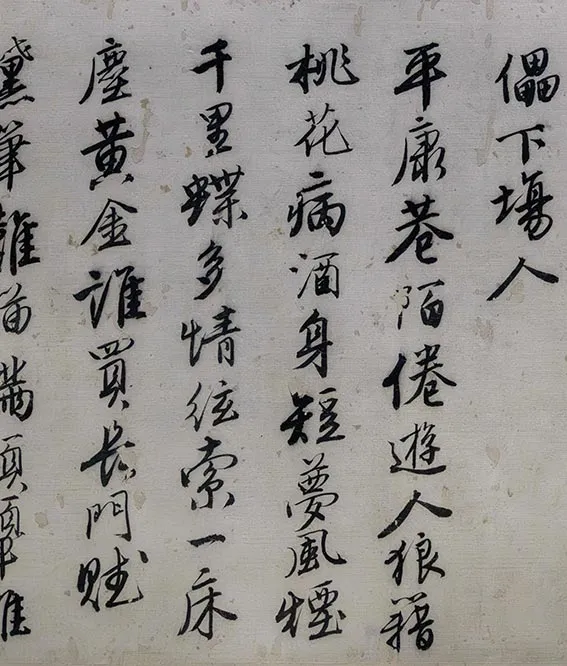 儡下塲人
平康巷陌倦遊人狼籍
桃花病酒身短夢風煙
千里蝶多情絃索一床
塵黃金誰買長門賦
黛筆難